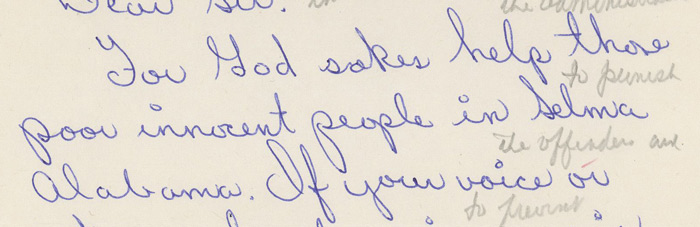 Dear Sir:
the
For God sakes help those
to punish
poor innocent people in Selma
the offenders and
Alabama. If your voice or
to prevent